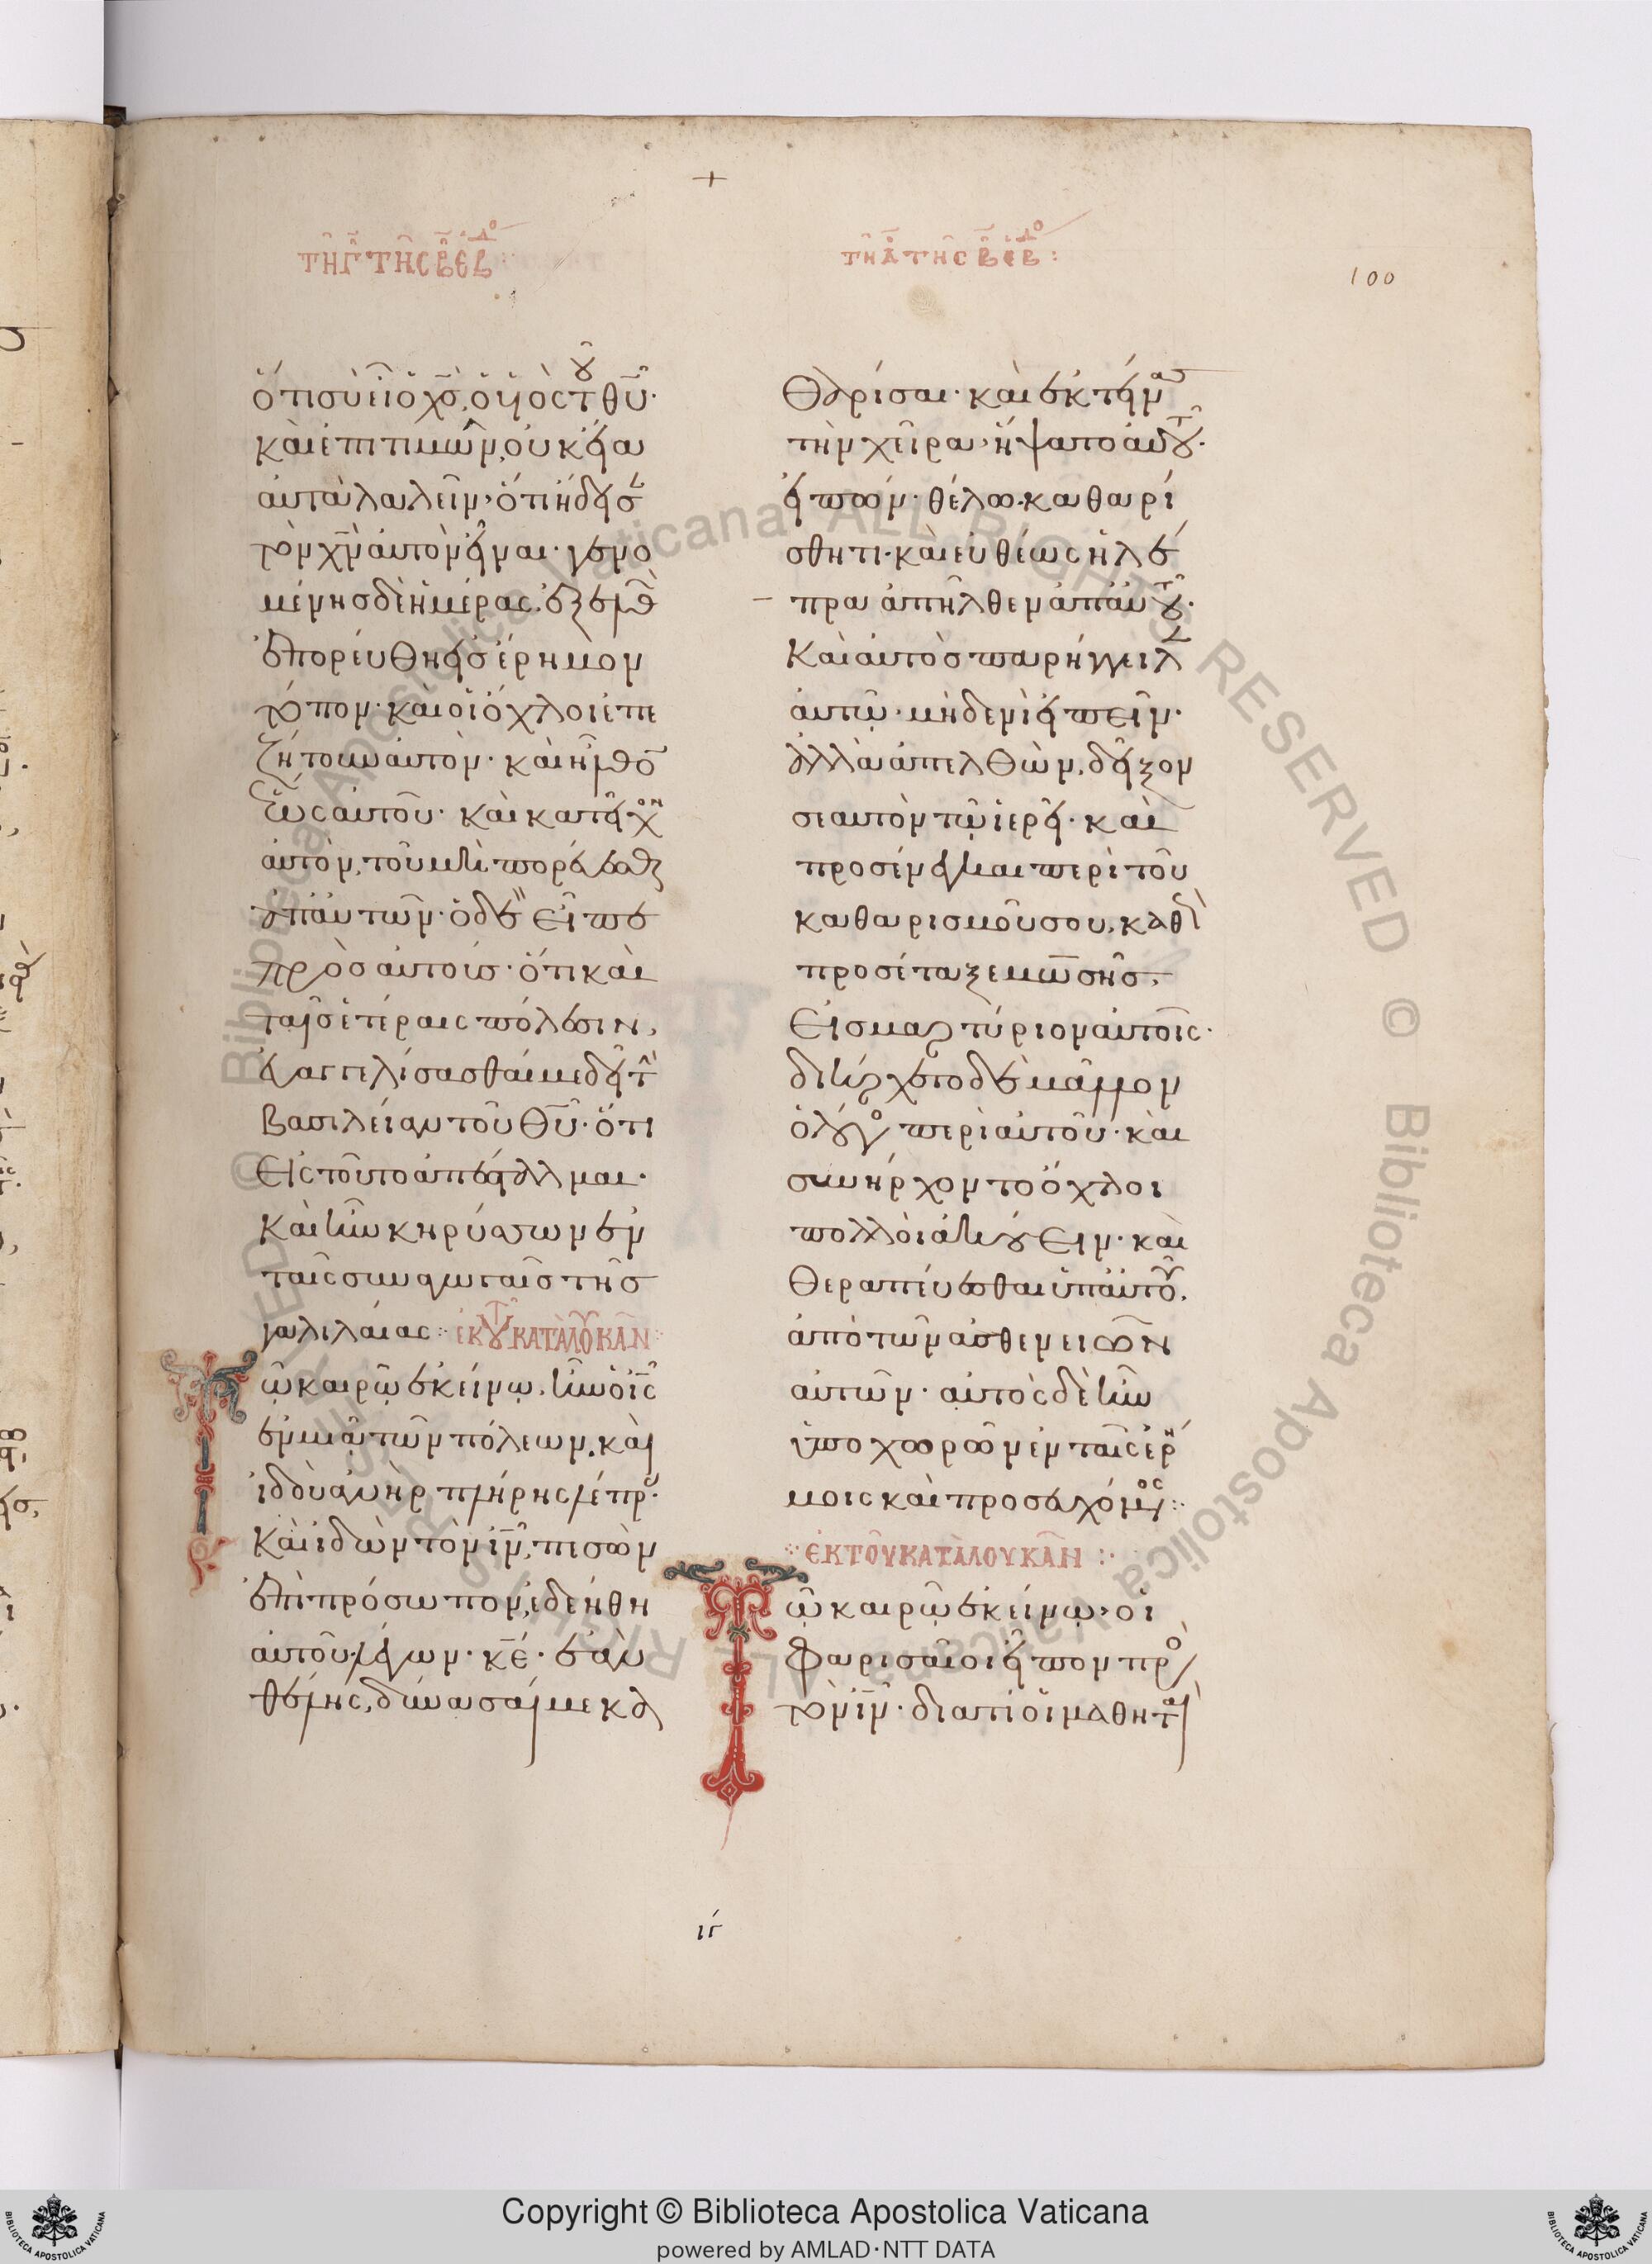 +
τῆ γ̅ τῆς β̅ ἑβδο
τῆ δ̅ τῆς β̅ ἑβδο:
100
ὅτι σὺ εἶ ὁ χ̅ς̅, ὁ υἱὸς τοῦ θ̅υ̅·
καὶ ἐπιτιμῶν, οὐκ εἴα
αὐτὰ λαλεῖν, ὅτι ᾔδεισ
τὸν χ̅ν̅ αὐτὸν εἶναι· γενο
μένης δὲ ἡμέρας, ἐξελθὼ
ἐπορεύθη εἰς ἔρημον
τόπον· καὶ οἱ ὄχλοι ἐπε
ζήτουν αὐτὸν· καὶ ἦλθο
ἕως αὐτοῦ· καὶ κατεῖχον
αὐτὸν, τοῦ μὴ πορεύεσθαι
ἀπ' αὐτῶν· ὁ δὲ εἶπε
πρὸς αὐτοὺς· ὅτι καὶ
ταῖς ἑτέραις πόλεσιν,
εὐαγγελίσασθαί με δεῖ τὴ
βασιλείαν τοῦ θ̅υ̅· ὅτι
εἰς τοῦτο ἀπέσταλμαι·
καὶ ἦν κηρύσσων ἐν
ταῖς συναγωγαῖς τῆς
γαλιλαίας: ἐκ τοῦ κατὰ λουκᾶν
Τῶ καιρῶ ἐκείνω, ἦν ὁ ι̅ς̅
ἐν μιᾶ τῶν πόλεων, καὶ
ἰδοὺ ἀνὴρ πλήρης λέπρας·
καὶ ἰδὼν τὸν ι̅ν̅, πεσὼν
ἐπὶ πρόσωπον, ἐδεήθη
αὐτοῦ λέγων· κ̅ε̅· ἐὰν
θέλης, δύνασαί με κα
θαρίσαι· καὶ ἐκτείνας
τὴν χεῖρα, ἥψατο αὐτοῦ·
εἰπών· θέλω, καθαρί
σθητι· καὶ εὐθέως ἡ λέ
πρα ἀπῆλθεν ἀπ' αὐτοῦ·
καὶ αὐτὸς παρήγγειλε
αὐτῶ· μηδενὶ εἰπεῖν·
ἀλλὰ ἀπελθὼν, δεῖξον
σεαυτὸν τῶ ἱερεῖ· καὶ
προσένεγκαι περὶ τοῦ
καθαρισμοῦ σου, καθὼ
προσέταξε μωσῆς,
εἰς μαρτύριον αὐτοῖς·
διήρχετο δὲ μᾶλλον
ὁ λόγος περὶ αὐτοῦ· καὶ
συνήρχοντο ὄχλοι
πολλοὶ ἀκούειν· καὶ
θεραπεύεσθαι ὑπ' αὐτοῦ,
ἀπὸ τῶν ἀσθενειῶν
αὐτῶν· αὐτὸς δὲ ἦν
ὑποχωρῶν ἐν ταῖς ἐρή
μοις καὶ προσευχόμενος:
ἐκ τοῦ κατὰ λουκᾶν:
Τῶ καιρῶ ἐκείνω, οἱ
φαρισαῖοι εἶπον πρὸς
τὸν ι̅ν̅· διατί οἱ μαθηταὶ
ιγ
Copyright © Biblioteca Apostolica Vaticana
powered by AMLAD·NTT DATA